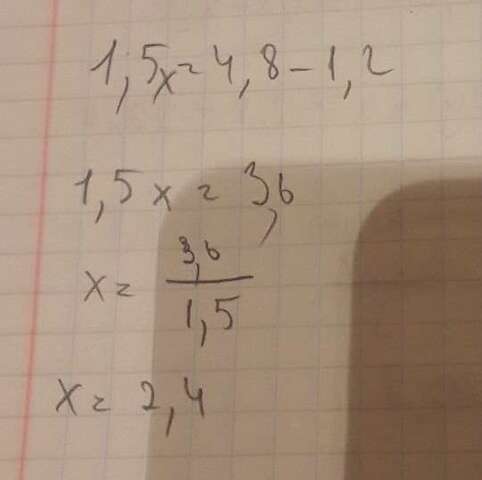 1,5x=4,8-1,2
1,5x=3,6
x=3,6/1,5
x=2,4